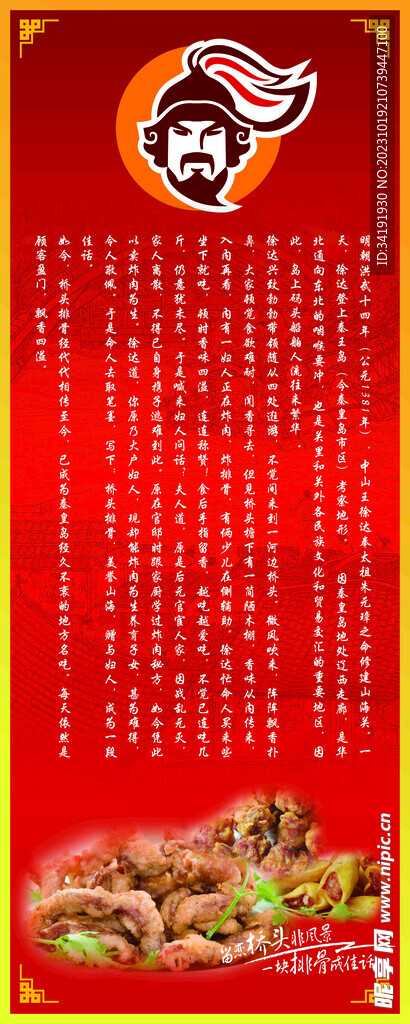 明朝洪武十四年(公元1381年),中山王徐达奉太祖朱元璋之命修建山海关。一
天,徐达登上秦王岛(今秦皇岛市区)考察地形。因秦皇岛地处辽西走廊,是华
北通向东北的咽喉要冲,也是关里和关外各民族文化和贸易交汇的重要地区,因
此,岛上码头船舶人流往来繁华。
徐达兴致勃勃带领随从四处遨游,不觉间来到一河边桥头,微风吹来,阵阵飘香扑
鼻,大家顿觉食欲难耐,闻香寻去,但见桥头檐下有一简陋木棚,香味从内传来,
入内再看,内有一妇人正在炸肉,炸排骨,有俩少儿在侧辅助,徐达忙命人买来些
坐下就吃,顿时香味四溢,连连称赞!食后手指留香,越吃越爱吃,不觉已连吃几
斤,仍意犹未尽。于是喊来妇人问话?夫人道,原是后元官宦人家,因战乱无天,
家人离散,不得已自身携子逃难到此,原在官邸时跟家厨学过炸肉秘方,如今凭此
以卖炸肉为生。徐达道,你原乃大户妇人,现却能炸肉为生养育子女,甚为难得,
令人敬佩。于是命人去取笔墨,写下:桥头排骨,美誉山海,赠与妇人,成为一段
佳话。
如今,桥头排骨经代代相传至今,已成为秦皇岛经久不衰的地方名吃。每天依然是
顾客盈门,飘香四溢。
留恋桥头非风景
一块排骨成佳话
ID:34191930 NO:20231019210739447100
昵享网 www.nipic.cn